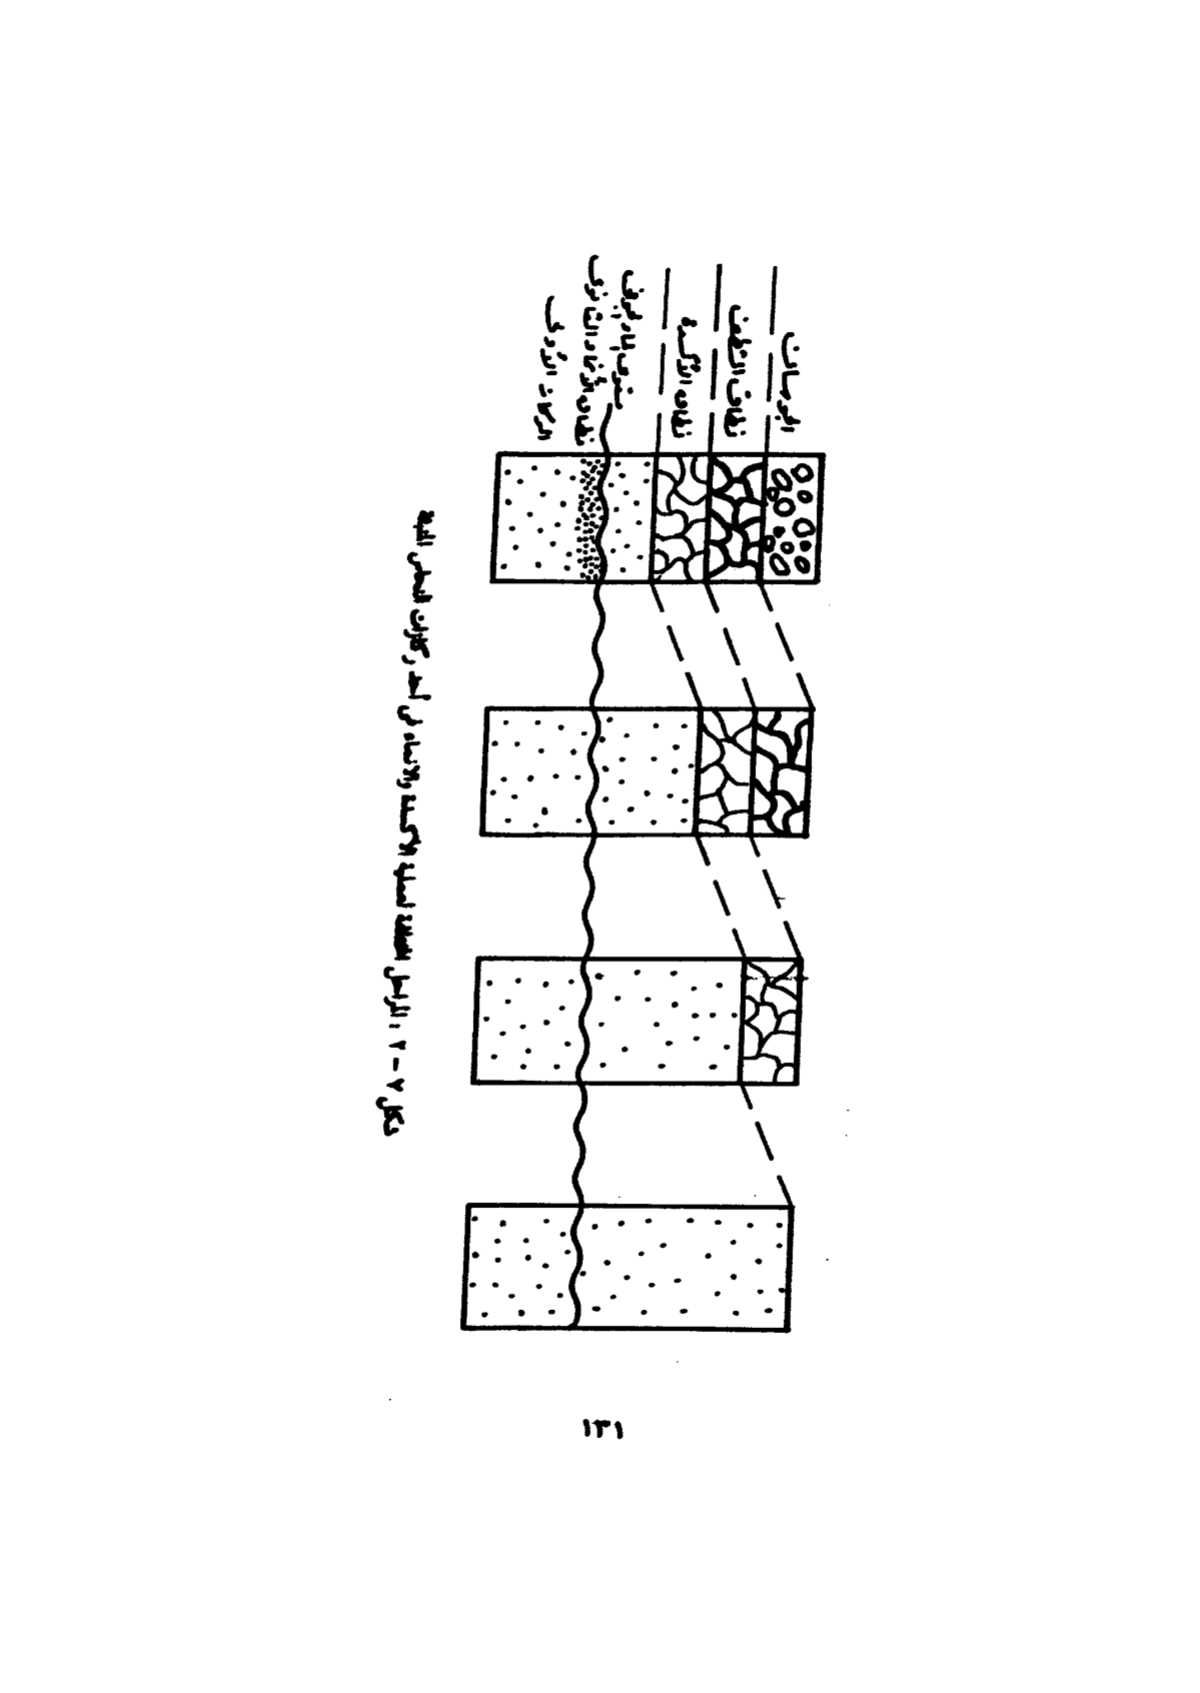 الجوسان
نطاق النطف
نطاق الأكسدة
مستوى الماء الجوفي
نطاق الإغناء الثانوي
الركاز الأولي
شكل ٧ - ٢ : المراحل المختلفة لعملية الأكسدة والاغناء في أحد ركازات المعادن
١٣١